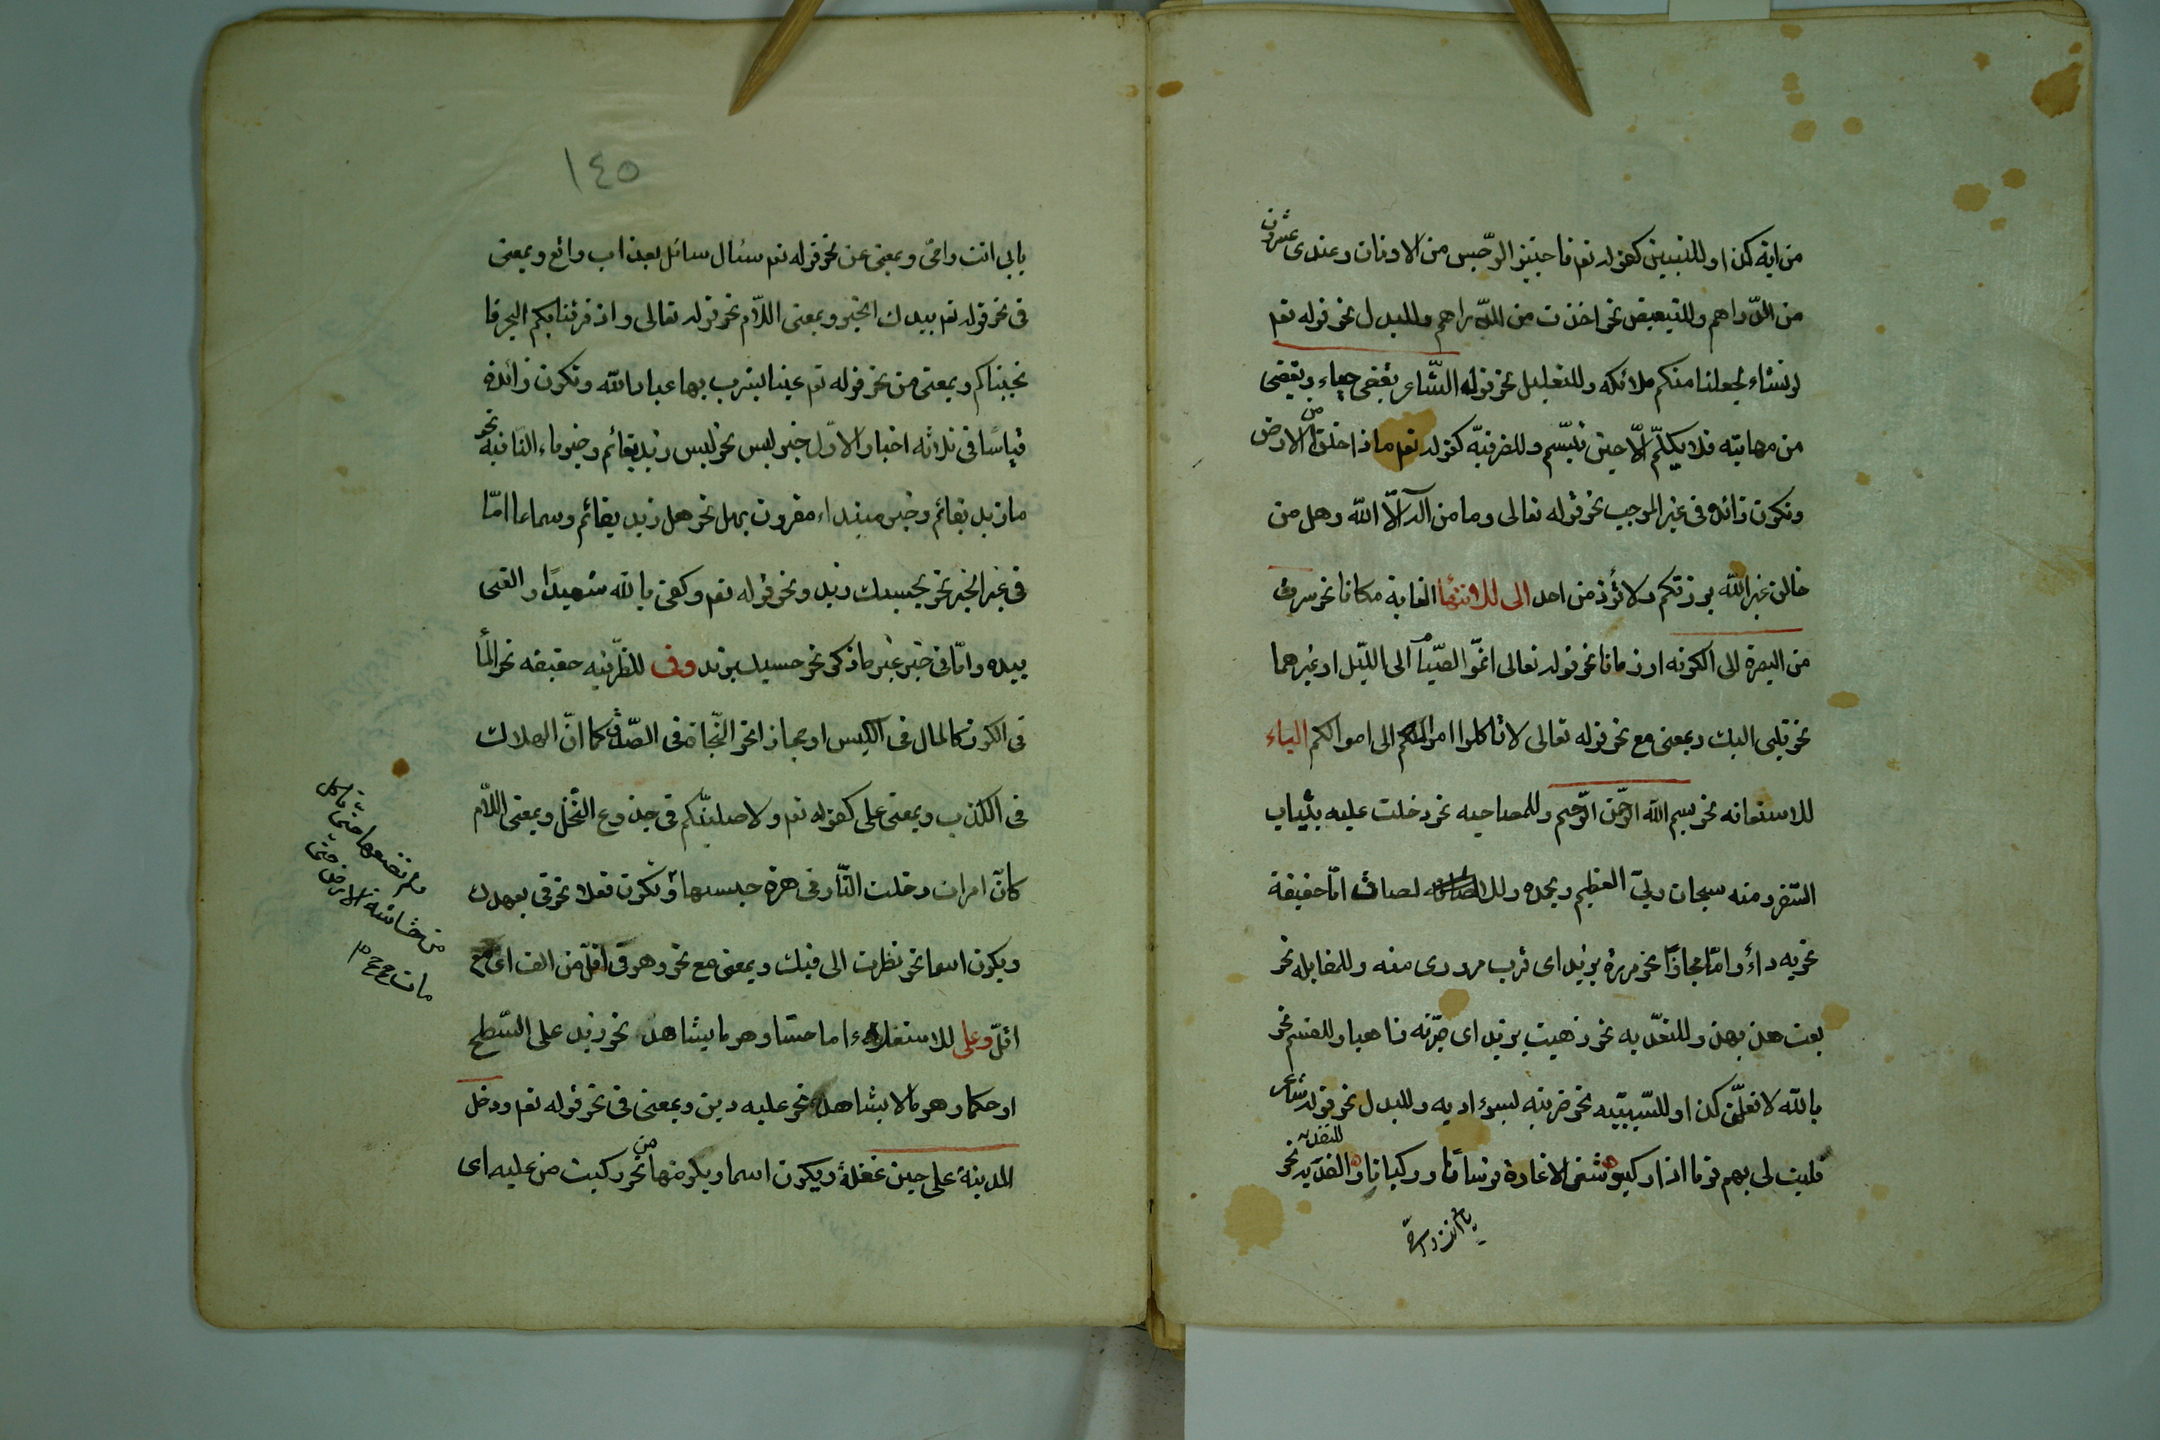 من اية كن او للتبيين كقوله تعم فاجتنبوا الرّجس من الاوثان وعندى عشرون
من الدّراهم وللتبعيض نحو اخذت من الدّراهم وللبدل نحو قوله تعم
لو نشاء لجعلنا منكم ملائكه وللتعليل نحو قوله الشّاعر يغضى حياء ويغضى
من مهابته فلا يكلّم الّا حين تبسّم وللضرفيّه كقوله تعم ماذا خلقوا من الارض
وتكون زائده فى غير الموجب نحو قوله تعالى وما من اله الّا الله وهل من
خالق غير الله يرزقكم ولا تؤذ من احد الى للانتهاء الغاية مكانا نحو سرت
من البصرة الى الكوفه او زمانا نحو قوله تعالى اتمّوا الصّيام الى اللّيل او غيرهما
نحو قلبى اليك وبمعنى مع نحو قوله تعالى لا تاكلوا اموالكم الى اموالكم الباء
للاستعانه نحو بسم الله الرّحمن الرّحيم وللمصاحبه نحو دخلت عليه بثياب
السّفر ومنه سبحان ربّى العظيم وبحمده ولل لصاق امّا حقيقة
نحو به داء وامّا مجازا نحو مررة بزيد اى قرب مرورى منه وللمقابله نحو
بعت هذ بهذ وللتعديه نحو ذهبت بزيد اى صيّرته ذاهبا وللقسم نحو
بالله لا تعلّق كذا وللسّببيّه نحو ضربته لسوء ادبه وللبدل نحو قوله شاعر
فليت لى بهم قوما اذا ركبوا شنوا الاغارة فرسانا وركبانا وللتفديه نحو
بابى انت وامّى وبمعنى عن نحو قوله تعم سئال سائل بعذاب واقع وبمعنى
فى نحو قوله تعم بيدك الخير وبمعنى اللّام نحو قوله تعالى واذ فرقنا بكم البحر فا
نجيناكم وبمعنى من نحو قوله تعم عينا يشرب بها عباد الله وتكون زائده
قياسًا فى ثلاثه اخبار الاوّل خبر ليس نحو ليس زيد بقائم وخبر ماء النافية نحو
ما زيد بقائم وخبر مبتداء مقرون بهل نحو هل زيد بقائم وسماعا امّا
فى غير الخبر نحو بحسبك زيد ونحو قوله تعم وكفى بالله شهيدًا والقى
بيده وامّا فى خبر غير ما ذكر نحو حسبك بزيد وفى للظّرفيه حقيقه نحو الماء
فى الكوز كالمال فى الكيس او مجازا نحو النّجاة فى الصّدق كما انّ الهلاك
فى الكذب وبمعنى على كقوله تعم ولاصلبنّكم فى جذوع النّخل وبمعنى اللّام
كانّ امراة دخلت النّار فى هرة حبستها وتكون فعلا نحو فى بعهدك
ويكون اسما نحو نظرت الى فيك وبمعنى مع نحو وهو فى اقلّ من الف اى مع
اقلّ وعلى للاستعلاء اما حسّا وهو ما يشاهد نحو زيد على السّطح
او حكما وهو ما لا يشاهد نحو عليه دين وبمعنى فى نحو قوله تعم ودخل
المدينة على حين غفلة ويكون اسما ويكون من نحو ركبت من عليه اى
١٤٥